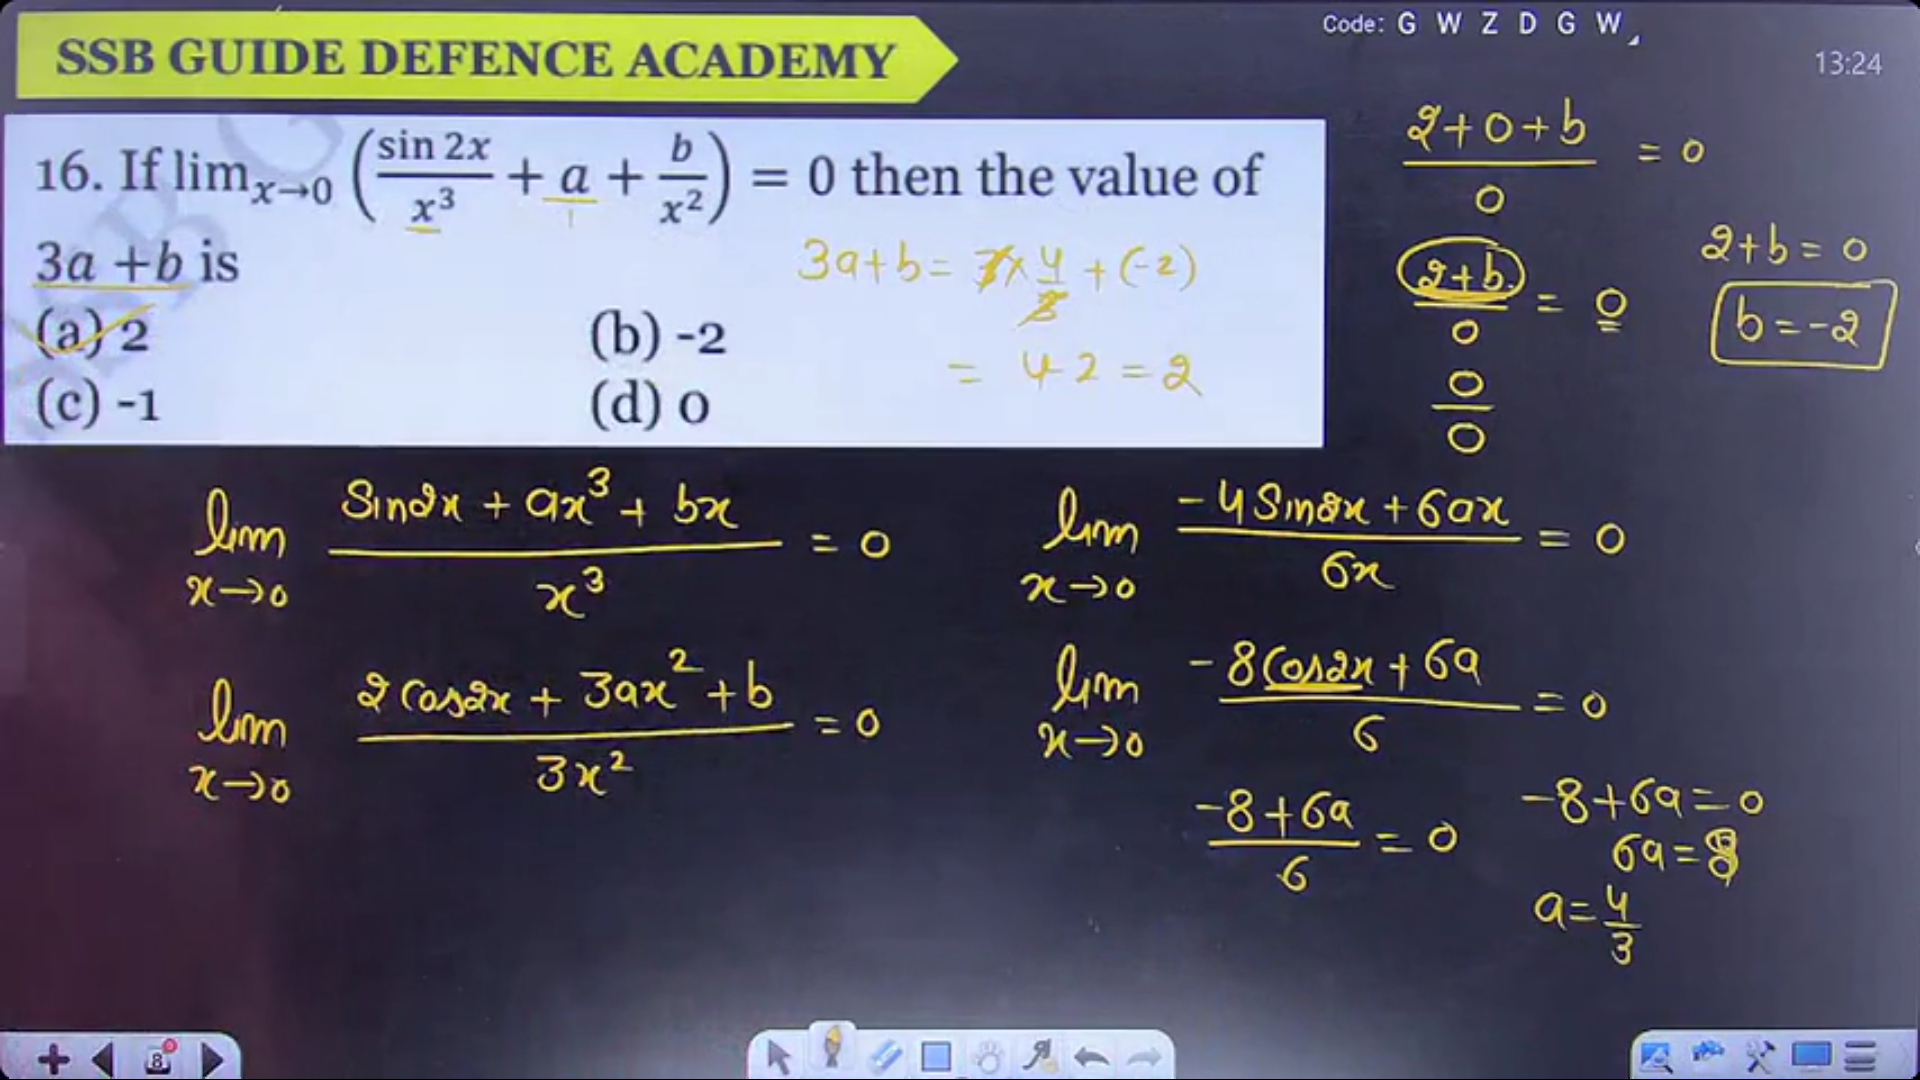 SSB GUIDE DEFENCE ACADEMY
Code: G W Z D G W
13:24
16. If lim x→0 (sin 2x / x³ + a + b / x²) = 0 then the value of
3a + b is
(a) 2
(b) -2
(c) -1
(d) 0
3a+b = 3 × 4/3 + (-2)
= 4-2 = 2
(2+0+b) / 0 = 0
(2+b) / 0 = 0
0/0
2+b = 0
b = -2
lim x→0 (Sin2x + ax³ + bx) / x³ = 0
lim x→0 (2Cos2x + 3ax² + b) / 3x² = 0
lim x→0 (-4Sin2x + 6ax) / 6x = 0
lim x→0 (-8Cos2x + 6a) / 6 = 0
(-8+6a) / 6 = 0
-8+6a = 0
6a = 8
a = 4/3
8